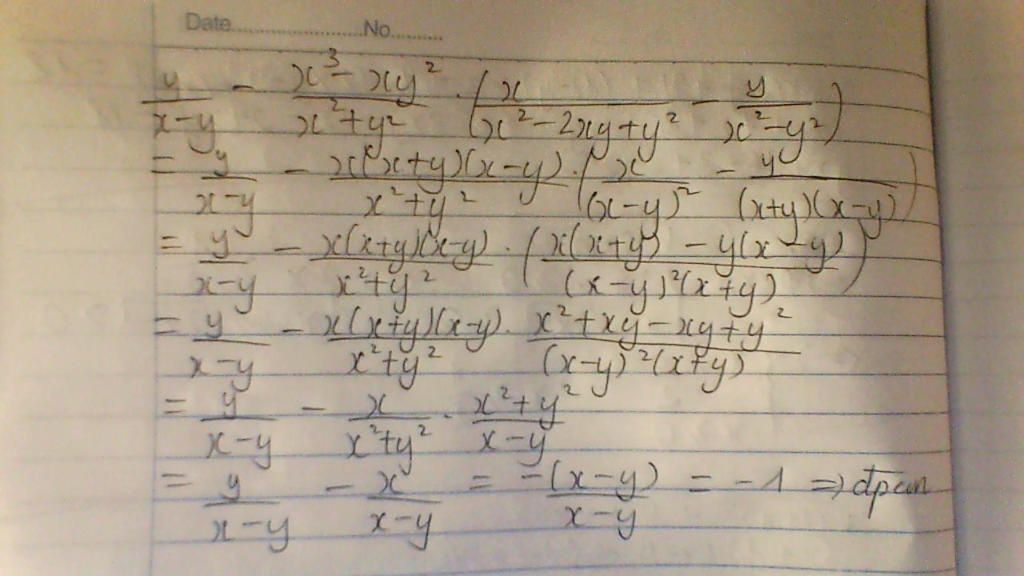 Date..........................No...........
\frac{y}{x-y} - \frac{x^3 - xy^2}{x^2+y^2} \cdot \left( \frac{x}{x^2-2xy+y^2} - \frac{y}{x^2-y^2} \right)
= \frac{y}{x-y} - \frac{x(x+y)(x-y)}{x^2+y^2} \cdot \left( \frac{x}{(x-y)^2} - \frac{y}{(x+y)(x-y)} \right)
= \frac{y}{x-y} - \frac{x(x+y)(x-y)}{x^2+y^2} \cdot \left( \frac{x(x+y) - y(x-y)}{(x-y)^2(x+y)} \right)
= \frac{y}{x-y} - \frac{x(x+y)(x-y)}{x^2+y^2} \cdot \frac{x^2+xy-xy+y^2}{(x-y)^2(x+y)}
= \frac{y}{x-y} - \frac{x}{x^2+y^2} \cdot \frac{x^2+y^2}{x-y}
= \frac{y}{x-y} - \frac{x}{x-y} = \frac{-(x-y)}{x-y} = -1 => đpcm